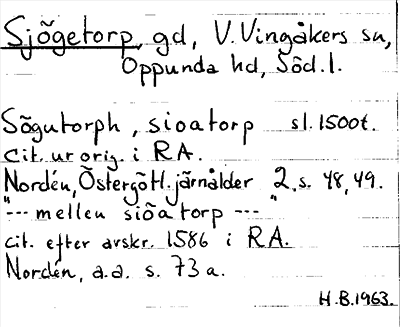 Sjögetorp, gd, V. Vingåkers sn,
Oppunda hd, Söd. l.
Sögutorph, sioatorp sl. 1500t.
cit. ur orig. i RA.
Nordén, Östergötl. järnålder 2, s. 48, 49.
"--- mellen siöatorp ---"
cit. efter avskr. 1586 i RA.
Nordén, a.a. s. 73 a.
H.B. 1963.